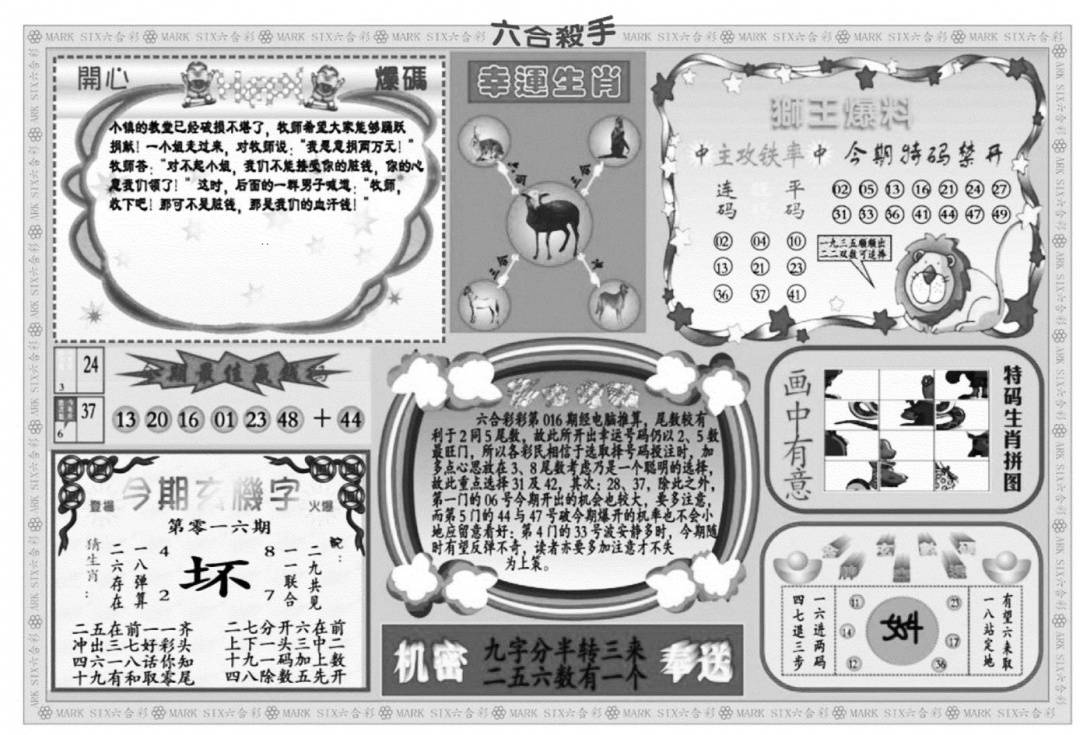 六合殺手
MARK SIX六合彩
開心
爆碼
小镇的教堂已经破损不堪了，牧师希望大家能够踊跃
捐献！一个姐走过来，对牧师说：“我愿意捐两万元！”
牧师答：“对不起小姐，我们不能接受你的脏钱，你的心
意我们领了！”这时，后面的一群男子喊道：“牧师，
收下吧！那可不是脏钱，那是我们的血汗钱！”
幸運生肖
獅王爆料
中主攻铁率中
今期特码禁开
连码
平码
02 04 10
13 21 23
36 37 41
02 05 13 16 21 24 27
31 33 36 41 44 47 49
一九三五顺顺出
二二双数可选择
24
3
37
6
13 20 16 01 23 48 + 44
今期玄機字
登福
火爆
第零一六期
猜生肖：
二六存在
一八弹算
4
2
坏
8
7
一一联合
二九共见
蛇：
二五在前一一齐
冲出三七好彩头
四六一八话你知
十九有和取零尾
二七分开六在前
上下一头三中二
十九一码加上数
四八除数五先开
六合彩彩第016期经电脑推算，尾数较有
利于2同5尾数，故此所开出幸运号码仍以2、5数
最旺门，所以各彩民相信于选取择号码投注时，加
多点心思放在3、8尾数考虑乃是一个聪明的选择，
故此重点选择31及42，其次：28、37，除此之外，
第一门的06号今期开出的机会也较大，要多注意，
而第5门的44与47号破今期爆开的机率也不会小
地应留意看好：第4门的33号波安静多时，今期随
时有望反弹不奇，读者亦要多加注意才不失
为上策。
机密
九字分半转三来
二五六数有一个
奉送
画中有意
特码生肖拼图
四七退三步
一六进两码
11
14
12
23
17
36
有望六来取
一八站定地